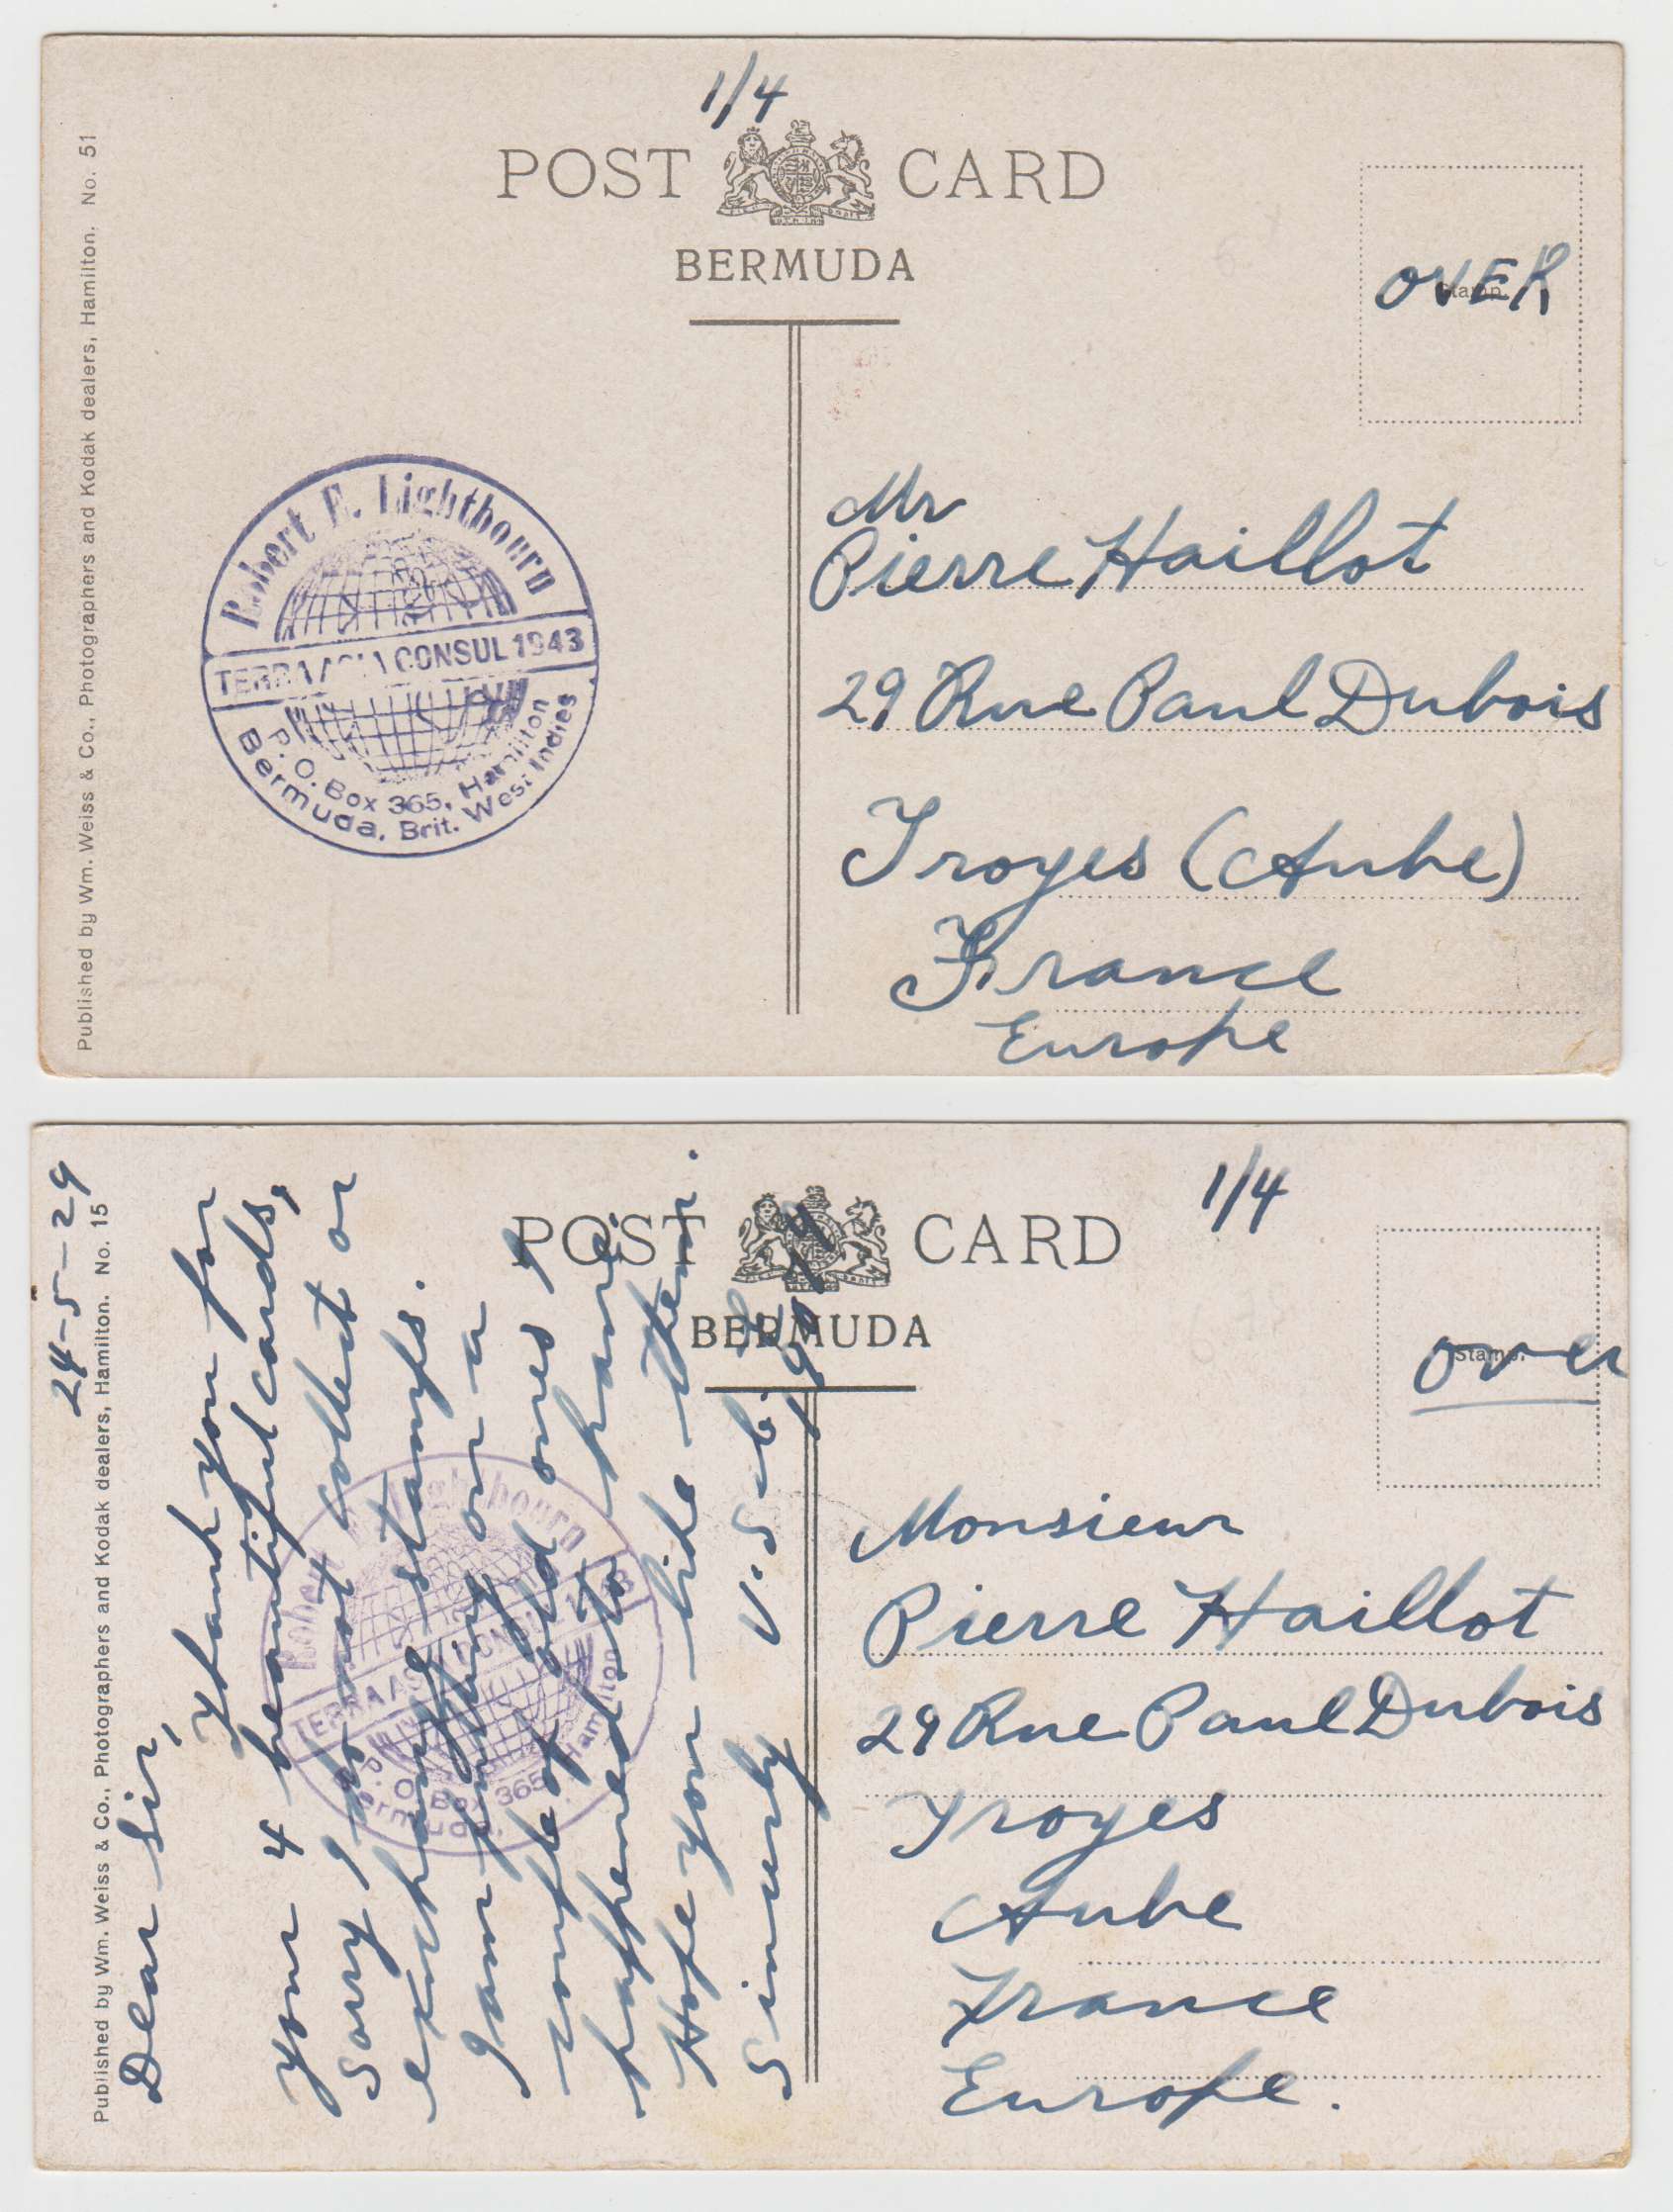 1/4
POST CARD
BERMUDA
Stamp.
OVER
Published by Wm. Weiss & Co., Photographers and Kodak dealers, Hamilton. No. 51
Robert E. Lightbourn
TERRA ASIA CONSUL 1943
P. O. Box 365, Hamilton
Bermuda, Brit. West Indies
Mr
Pierre Haillot
29 Rue Paul Dubois
Troyes (Aube)
France
Europe
1/4
POST CARD
BERMUDA
Stamp.
over
Published by Wm. Weiss & Co., Photographers and Kodak dealers, Hamilton. No. 15
24-5-29
Dear Sir,
Thank you for
your 4 beautiful cards,
Sorry I do not collect or
exchange stamps.
I am putting on a
couple of old ones I
happened to have.
Hope you like them.
Sincerely
Robert E. Lightbourn
TERRA ASIA CONSUL 1943
P. O. Box 365, Hamilton
Bermuda,
Monsieur
Pierre Haillot
29 Rue Paul Dubois
Troyes
Aube
France
Europe.